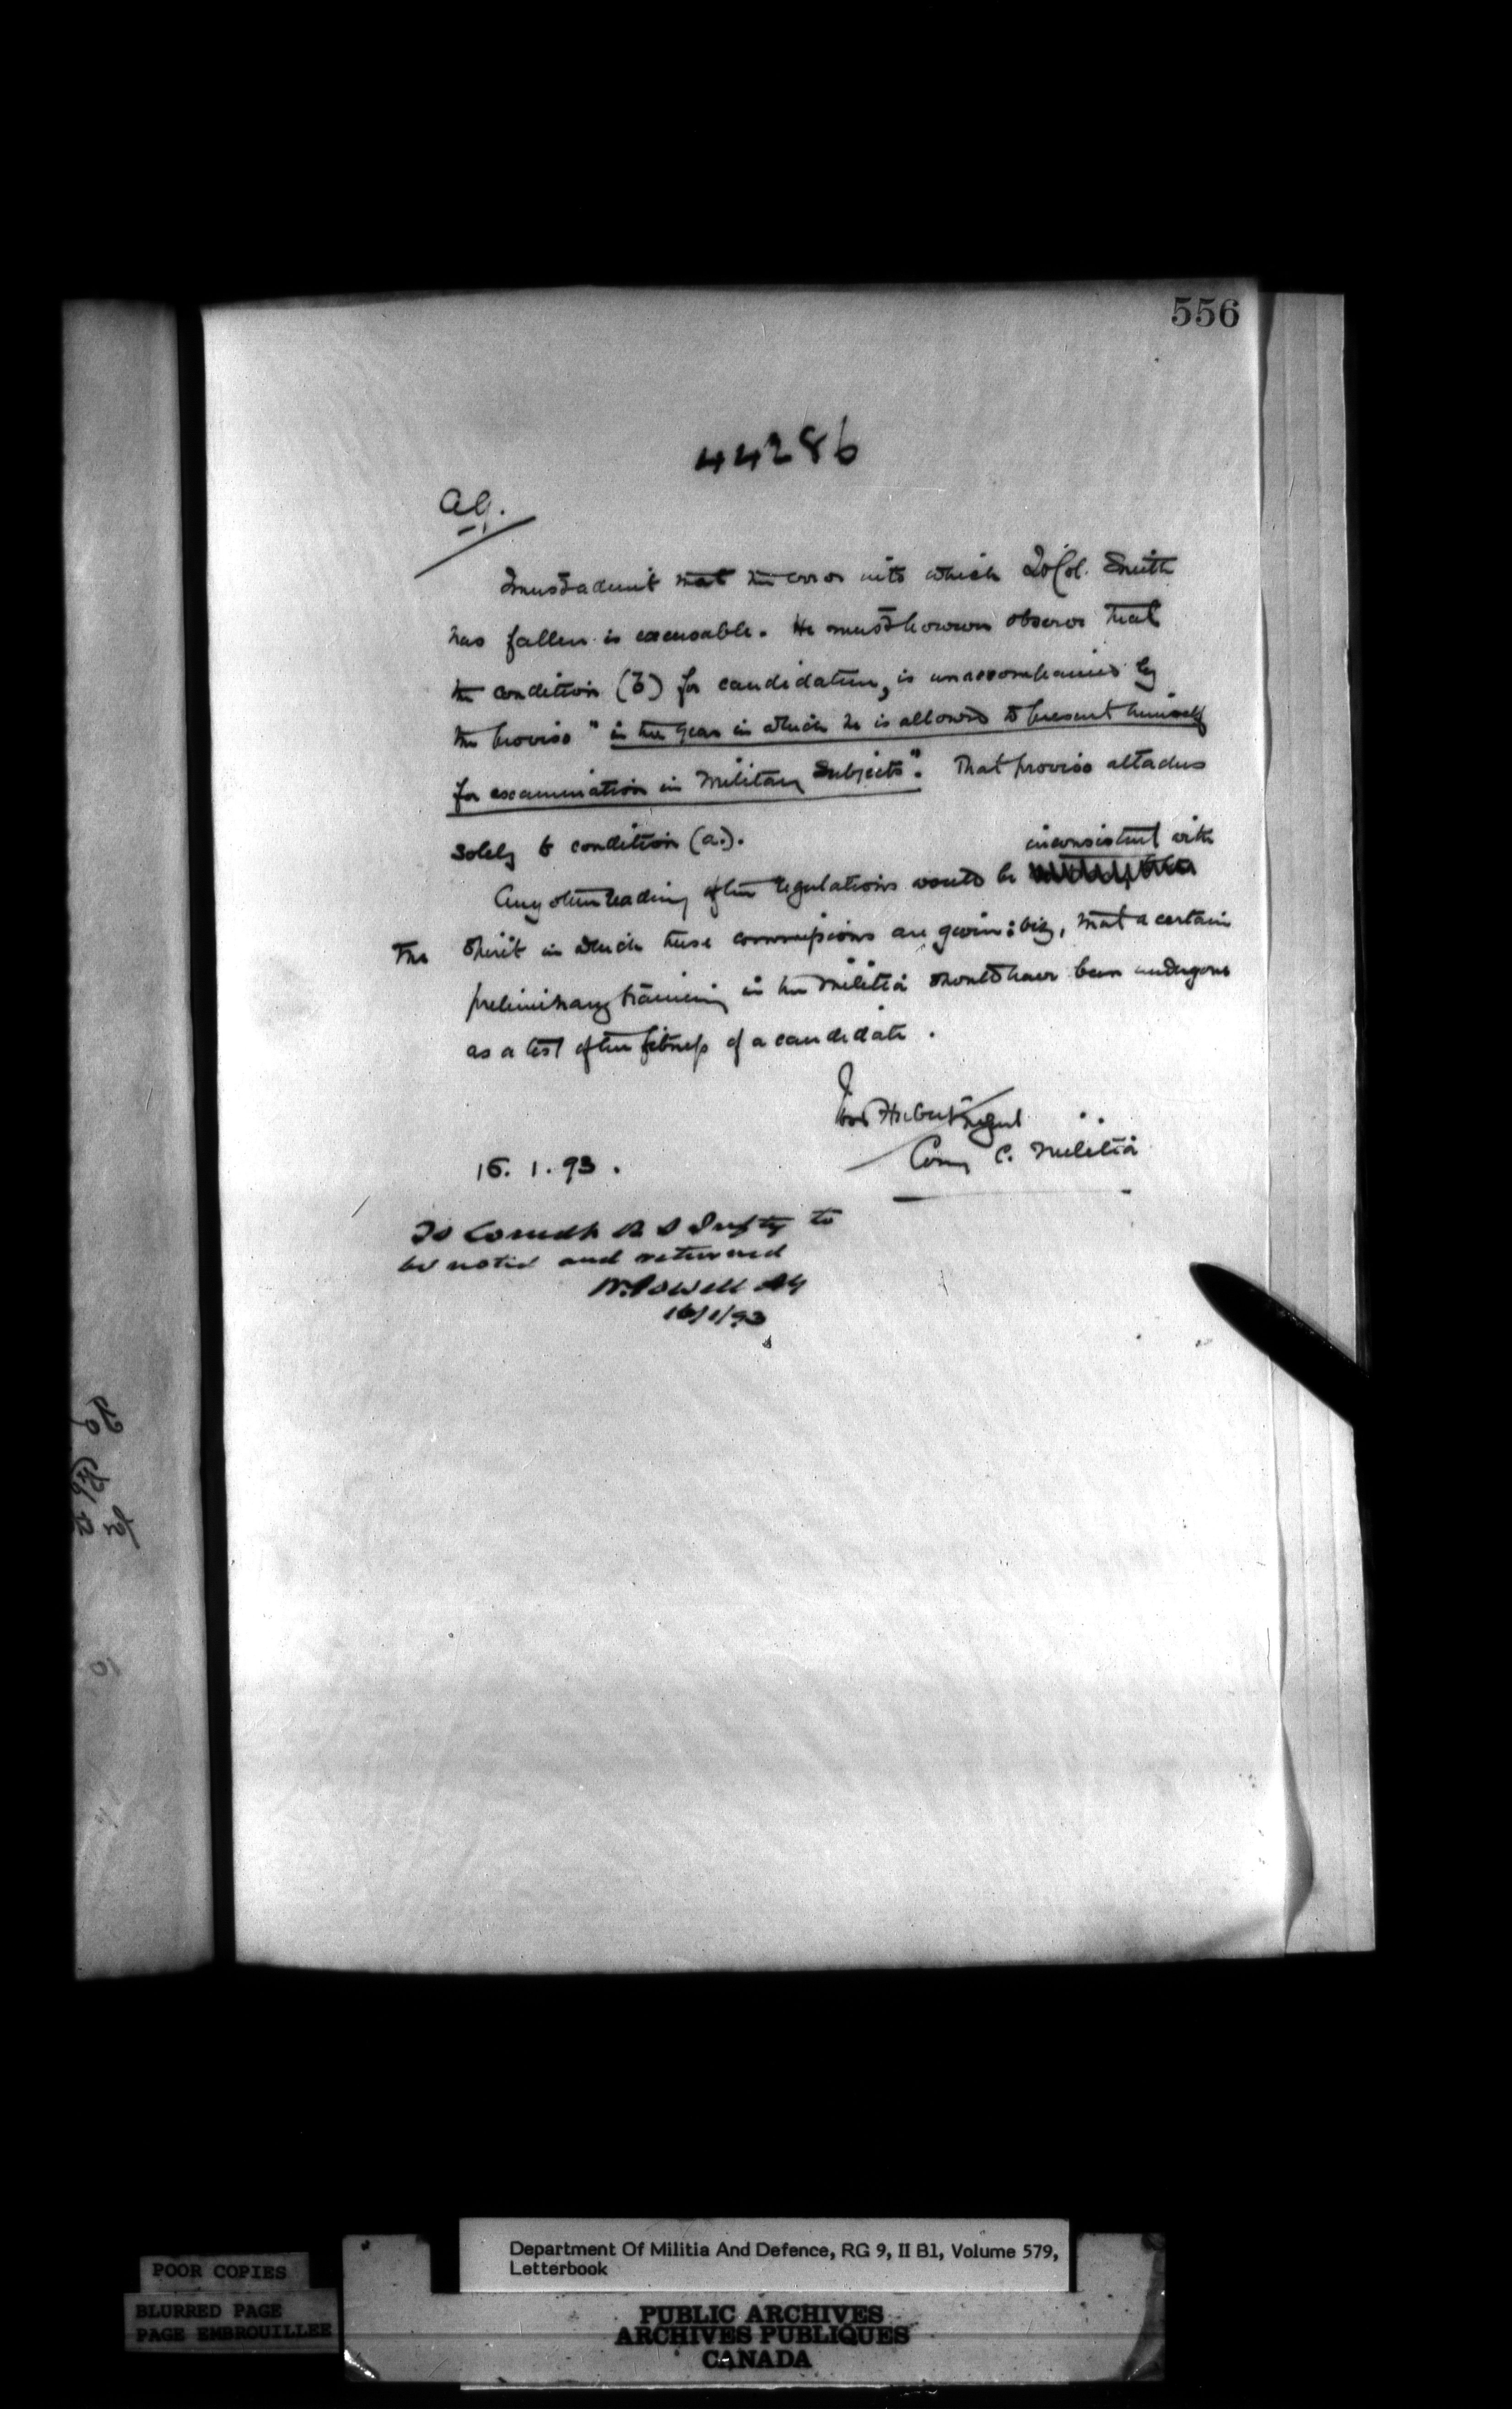 556
44286
A.G.
I must admit that the error into which Lt Col. Smith
has fallen is excusable. He must however observe that
the condition (b) for candidature, is unaccompanied by
the proviso "in the year in which he is allowed to present himself
for examination in Military Subjects". That proviso attaches
solely to condition (a).
inconsistent with
Any other reading of the regulations would be
the spirit in which these commissions are given: viz, that a certain
preliminary training in the Militia should have been undergone
as a test of the fitness of a candidate.
Ivor Herbert
Com C. Militia
16. 1. 93.
To Comdt R S Infty to
be noted and returned
W. Powell AG
16/1/93
To
for
10
POOR COPIES
BLURRED PAGE
PAGE EMBROUILLEE
Department Of Militia And Defence, RG 9, II B1, Volume 579,
Letterbook
PUBLIC ARCHIVES
ARCHIVES PUBLIQUES
CANADA